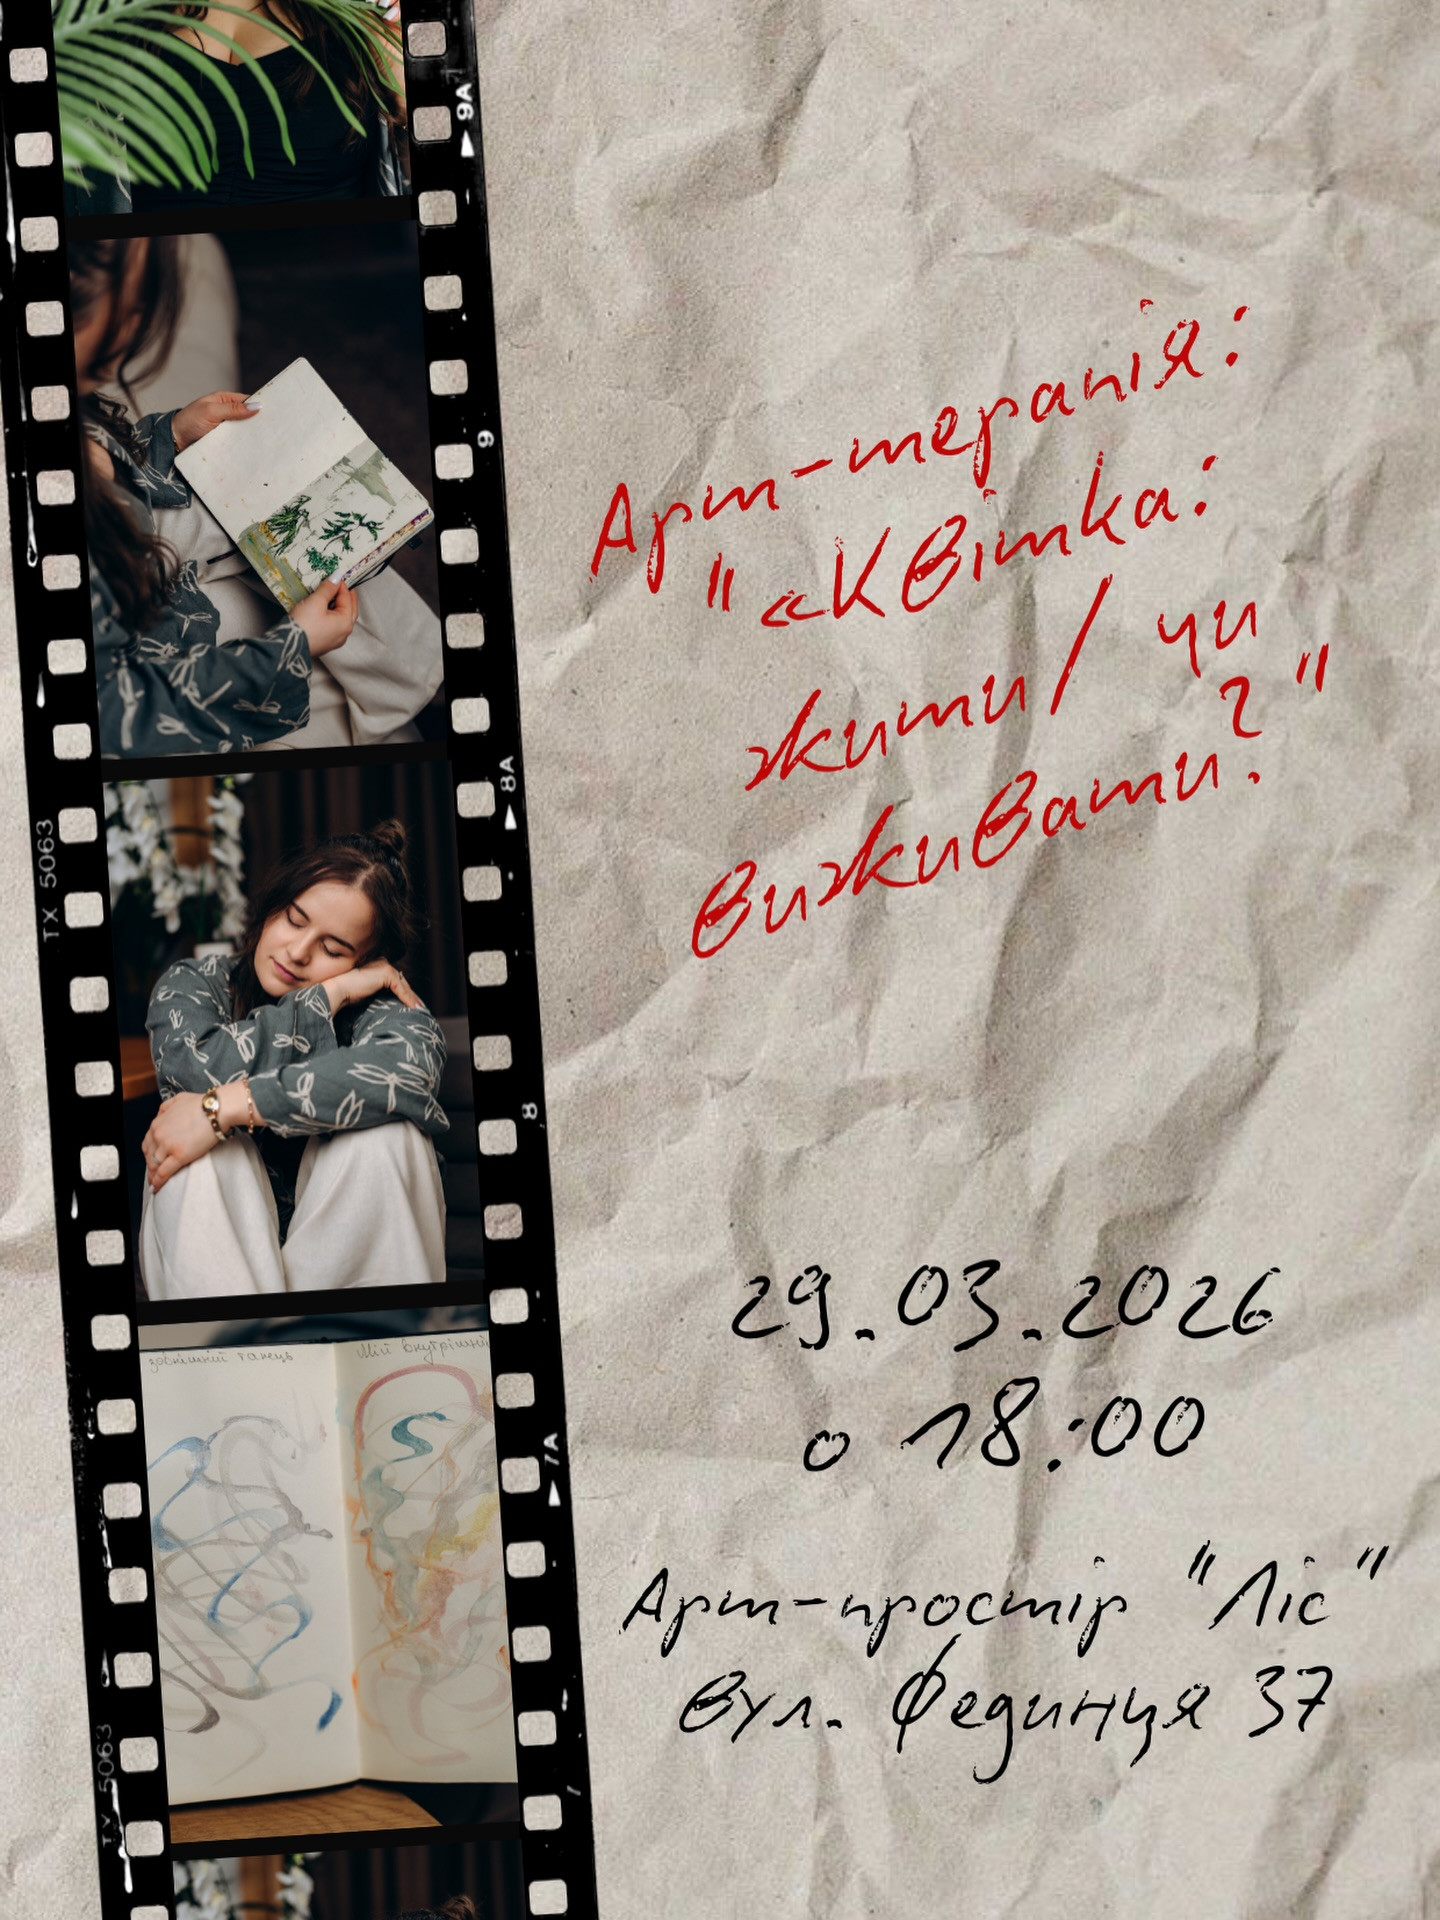 Арт-терапія:
"«Квітка:
жити/ чи
виживати?"
29.03.2026
о 18:00
Арт-простір "Ліс"
вул. Фединця 37
9A
9
8A
8
7A
TX 5063
зовнішній танець
Мій внутрішній
TX 5063